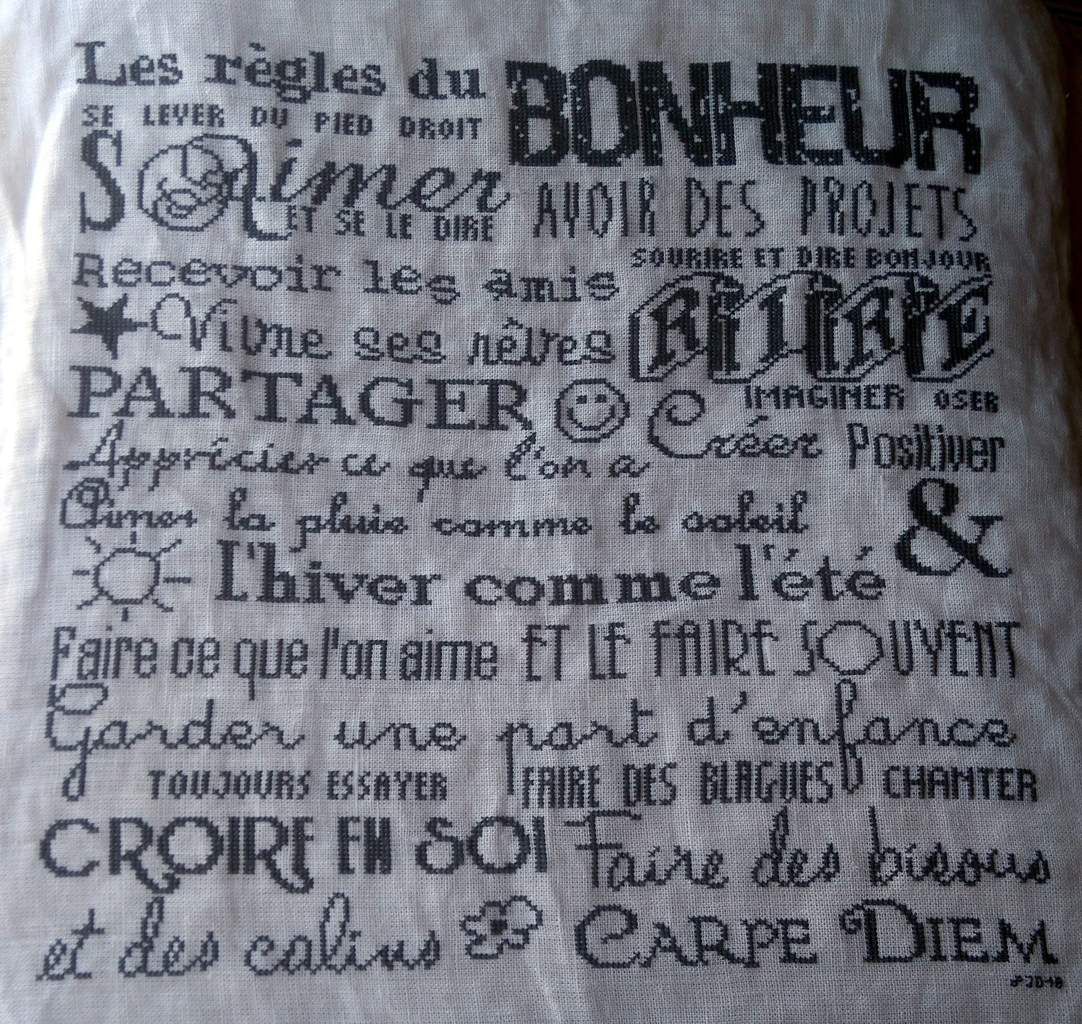 Les règles du BONHEUR
SE LEVER DU PIED DROIT
S'Aimer
ET SE LE DIRE
AVOIR DES PROJETS
Recevoir les amis
SOURIRE ET DIRE BONJOUR
Vivre ses rêves
RIRE
PARTAGER
IMAGINER OSER
Créer Positiver
Apprécier ce que l'on a
Aimer la pluie comme le soleil
&
L'hiver comme l'été
Faire ce que l'on aime ET LE FAIRE SOUVENT
Garder une part d'enfance
TOUJOURS ESSAYER FAIRE DES BLAGUES CHANTER
CROIRE EN SOI Faire des bisous
et des calins CARPE DIEM